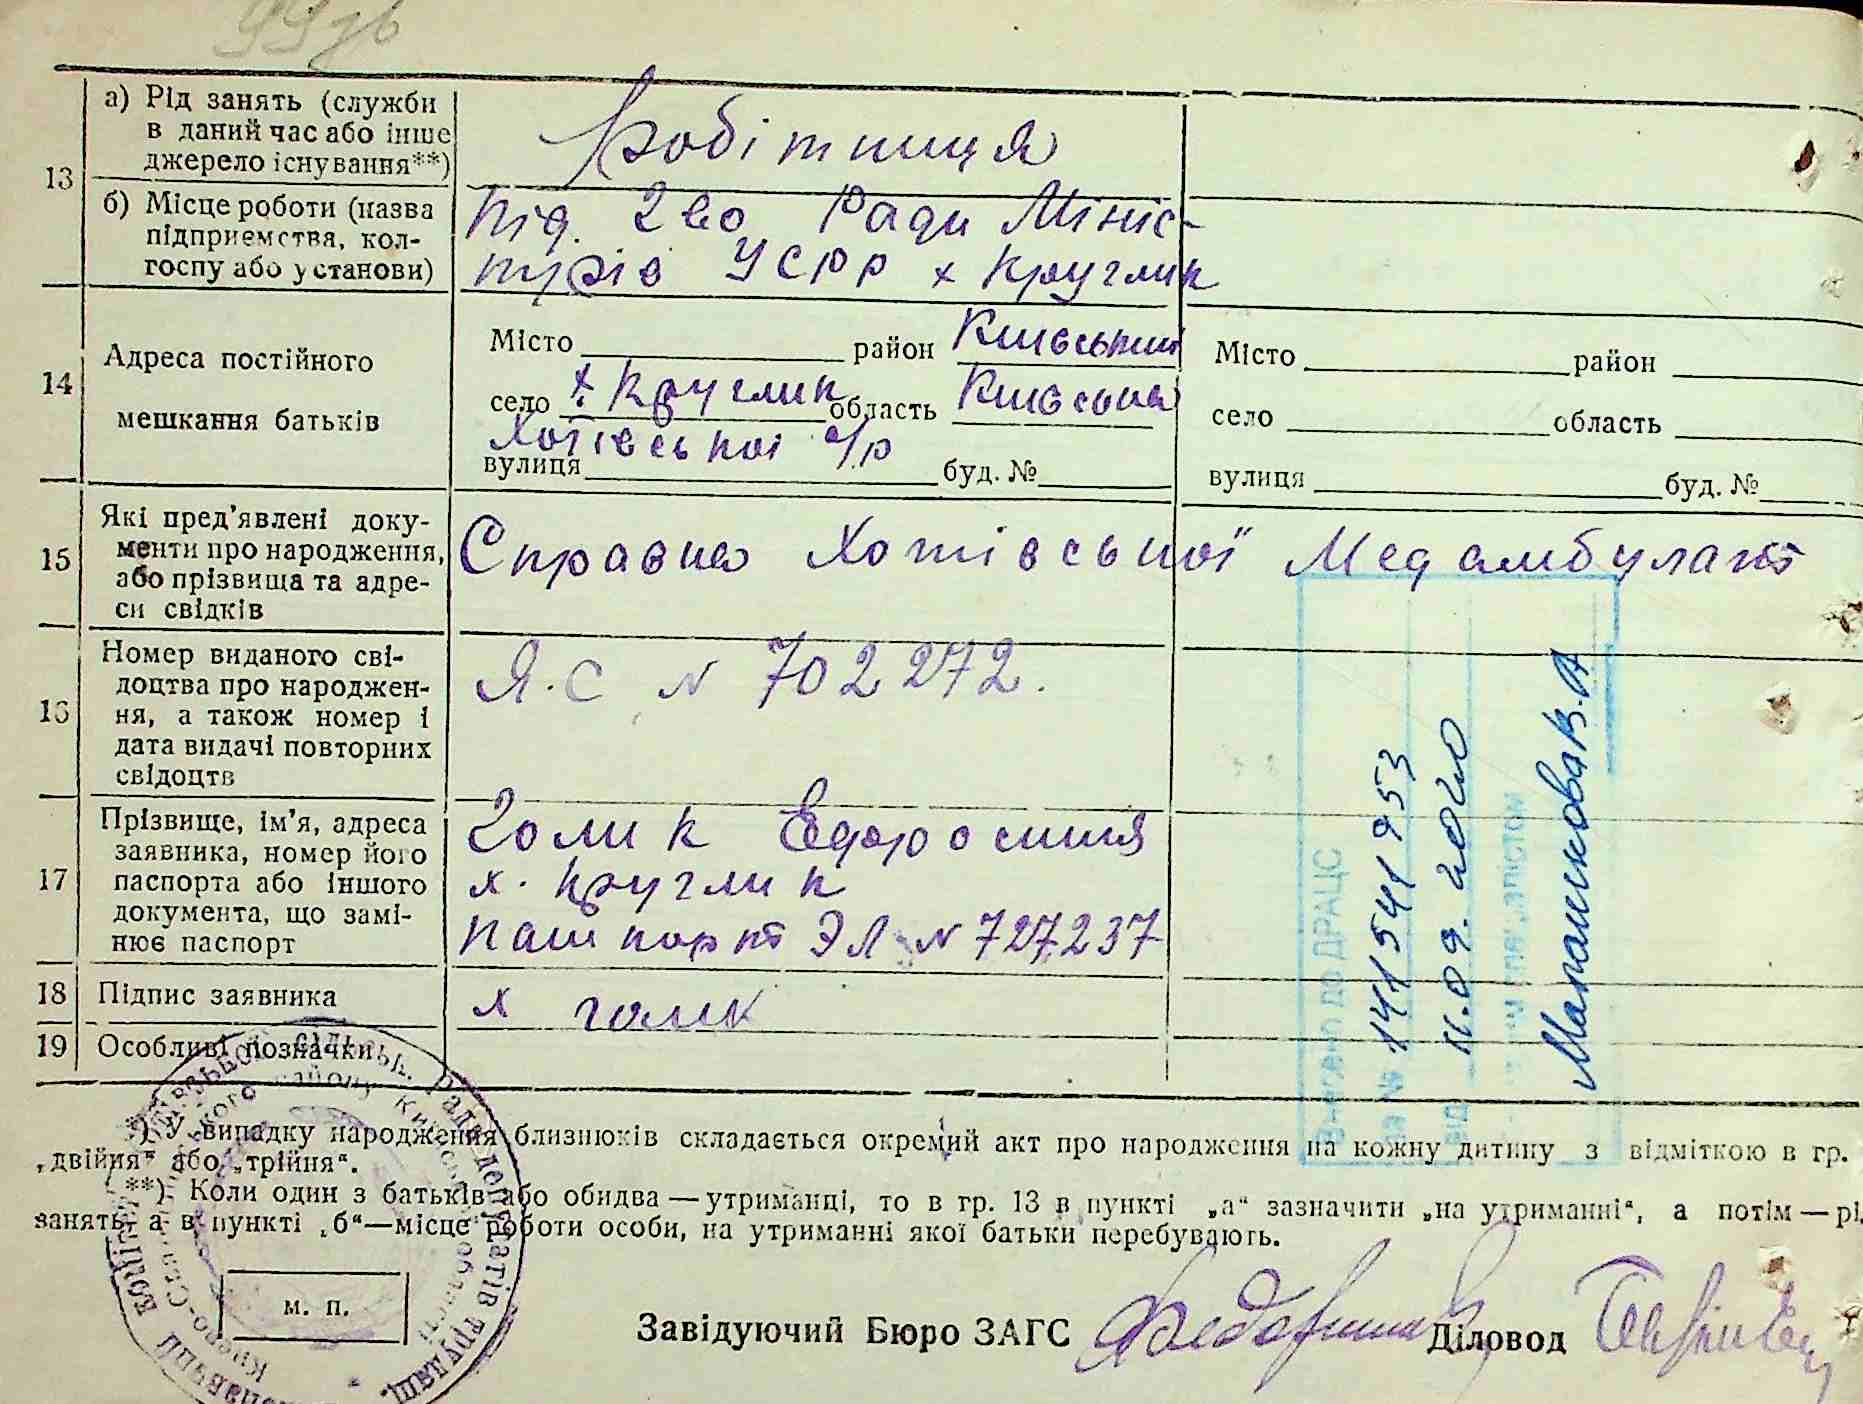 99зв
13
а) Рід занять (служби
в даний час або інше
джерело існування**)
Робітниця
б) Місце роботи (назва
підприємства, кол-
госпу або установи)
Під. г-во Ради Мініс-
трів УСРР х Круглик
14
Адреса постійного
мешкання батьків
Місто район Київський
село х Круглик область Київська
Хотівської с/р
вулиця буд. №
Місто район
село область
вулиця буд. №
15
Які пред'явлені доку-
менти про народження,
або прізвища та адре-
си свідків
Справка Хотівської Медамбулат
16
Номер виданого сві-
доцтва про народжен-
ня, а також номер і
дата видачі повторних
свідоцтв
Я.С N 702272.
17
Прізвище, ім'я, адреса
заявника, номер його
паспорта або іншого
документа, що замі-
нює паспорт
Голик
х. Круглик
Пашпорт ЭЛ N 727237
18
Підпис заявника
х голик
19
Особливі позначки
Внесено до ДРАЦС
за № 1411541953
від 11.09.2020
*) У випадку народження близнюків складається окремий акт про народження на кожну дитину з відміткою в гр.
„двійня" або „трійня".
**) Коли один з батьків або обидва — утриманці, то в гр. 13 в пункті „а" зазначити „на утриманні", а потім — рі
занять, а в пункті „б"—місце роботи особи, на утриманні якої батьки перебувають.
м. п.
Завідуючий Бюро ЗАГС
Діловод